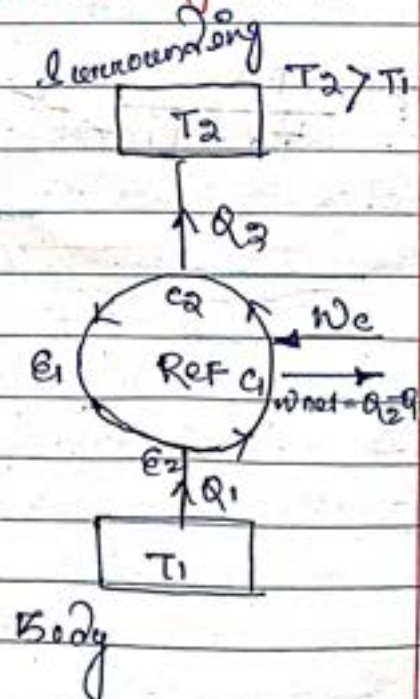 Surrounding
T2 > T1
T2
Q2
C2
Wc
E1 Ref C1
Wnet = Q2-Q
E2
Q1
T1
Body